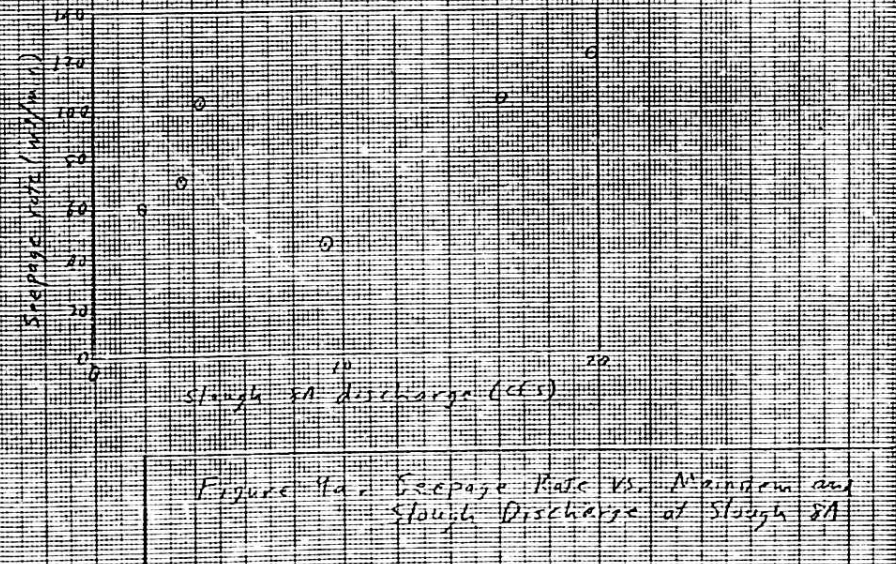 140
120
100
80
60
40
20
0
Seepage rate (m³/min)
0
10
20
Slough 8A discharge (cfs)
Figure 4a. Seepage Rate vs. Mainstem and
Slough Discharge at Slough 8A